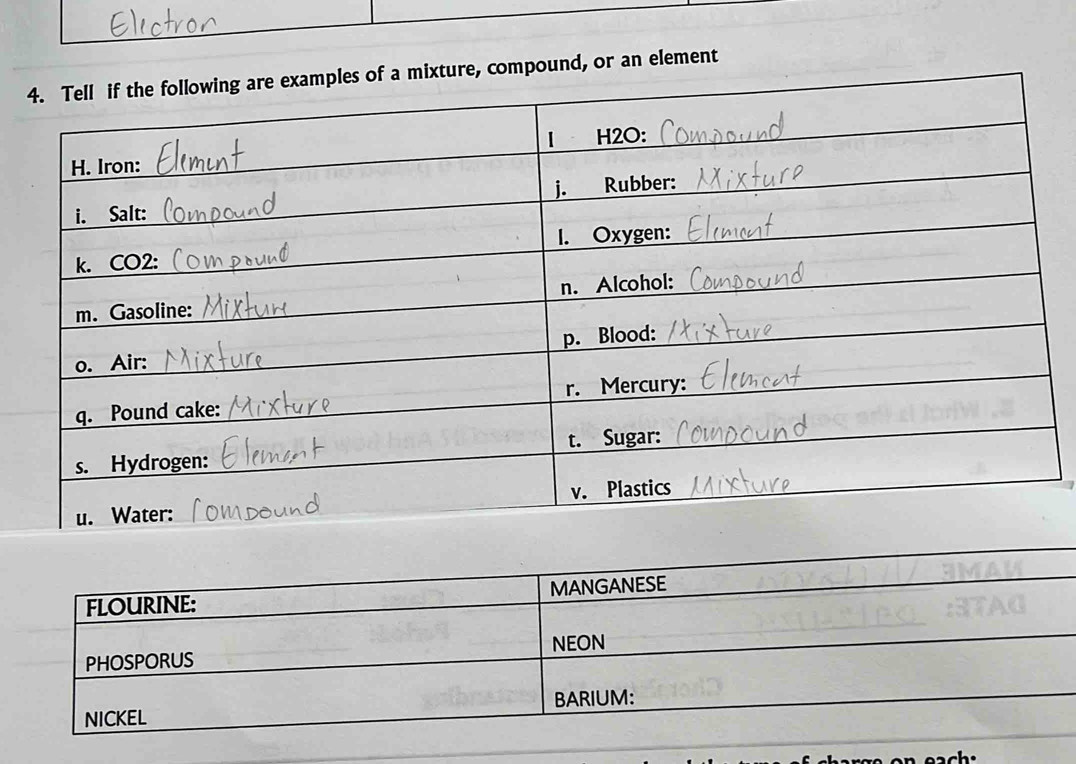 Electron
4. Tell if the following are examples of a mixture, compound, or an element
H. Iron: Element
I H2O: Compound
i. Salt: Compound
j. Rubber: Mixture
k. CO2: Compound
l. Oxygen: Element
m. Gasoline: Mixture
n. Alcohol: Compound
o. Air: Mixture
p. Blood: Mixture
q. Pound cake: Mixture
r. Mercury: Element
s. Hydrogen: Element
t. Sugar: Compound
u. Water: Compound
v. Plastics Mixture
FLOURINE:
MANGANESE
PHOSPORUS
NEON
NICKEL
BARIUM:
of charge on each: